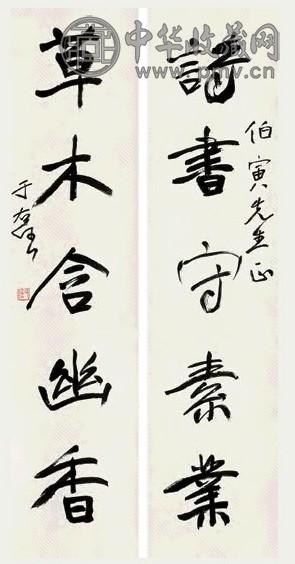 中华收藏网
www.pmv.cn
詩書守素業
伯寅先生正
草木含幽香
于右任